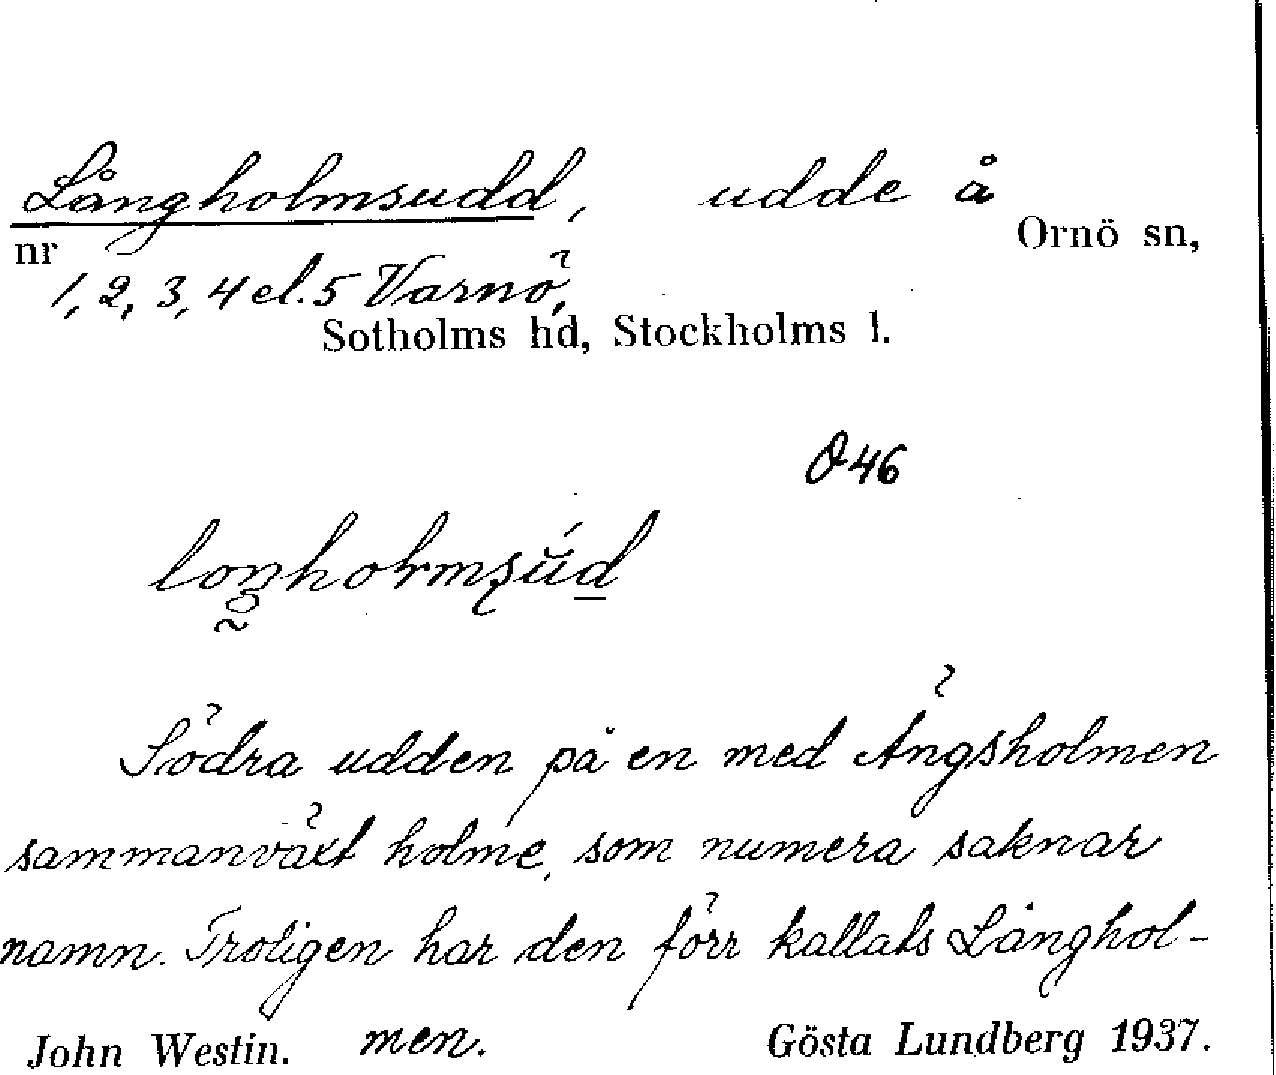 Långholmsudd, udde å
Ornö sn,
nr
1, 2, 3, 4 el. 5 Varnö,
Sotholms hd, Stockholms l.
Ö46
Södra udden på en med Ängsholmen
sammanväxt holme, som numera saknar
namn. Troligen har den förr kallats Långhol-
men.
John Westin. Gösta Lundberg 1937.